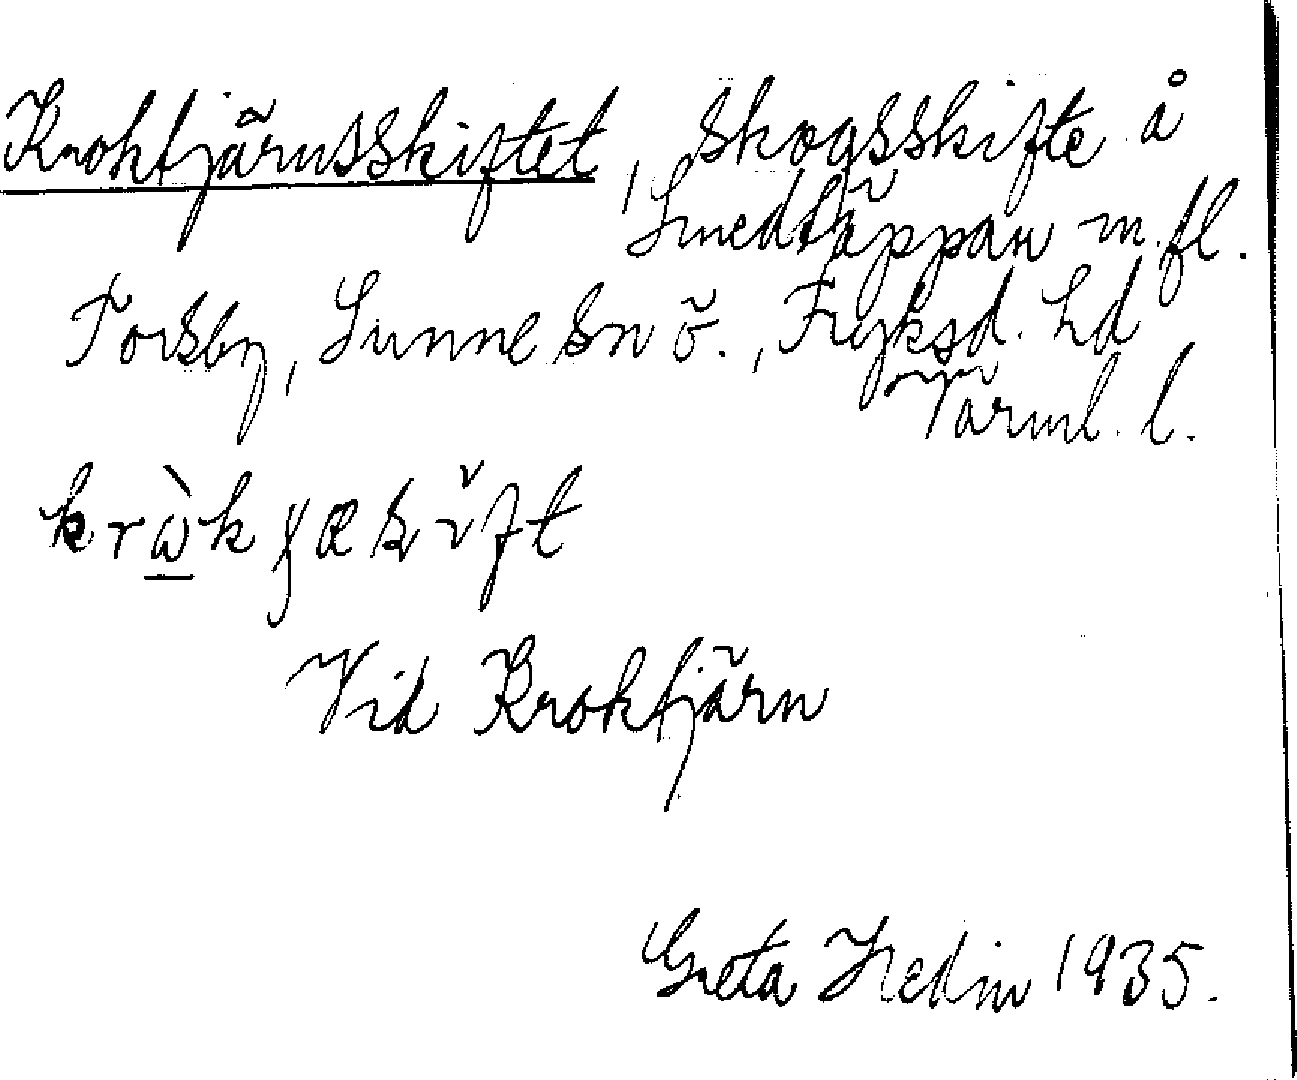 Kroktjärnsskiftet, skogsskifte å
Smedtäppan m.fl.
Torsby, Sunne sn ö., Fryksd. hd
Värml. l.
Vid Kroktjärn
Greta Hedin 1935.